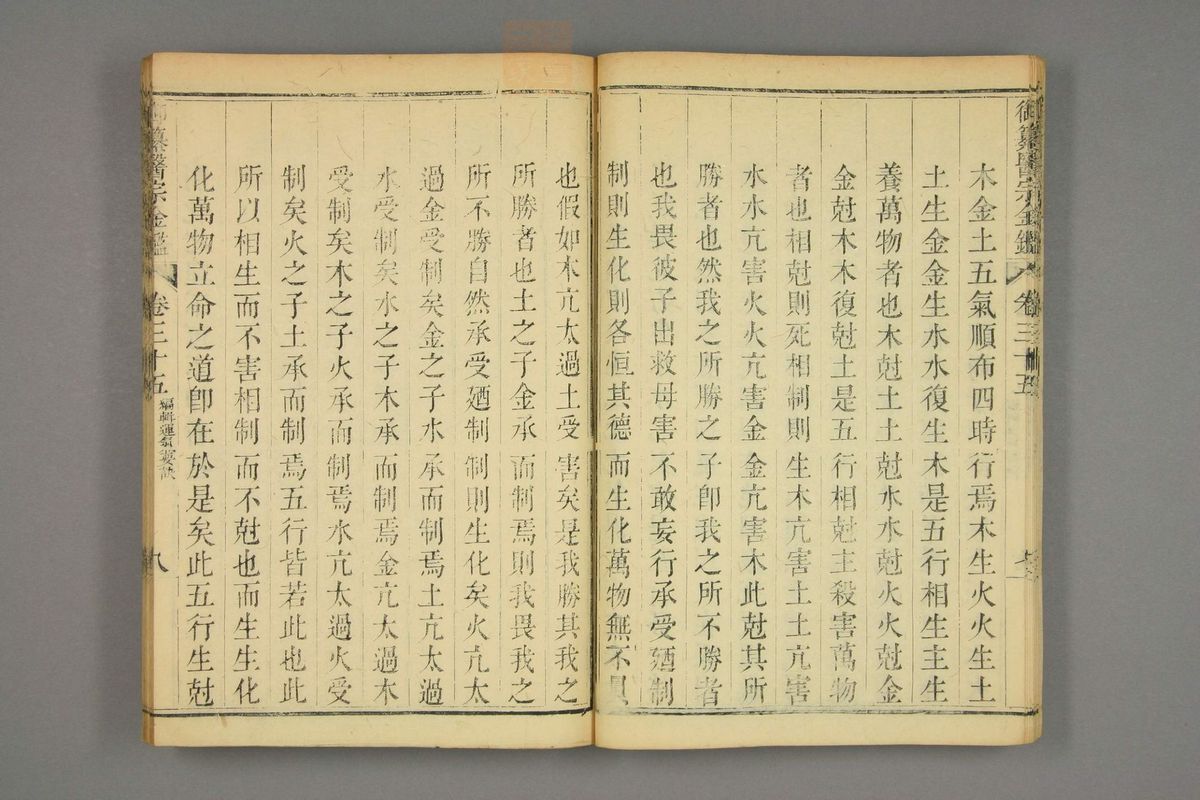 御纂醫宗金鑑 卷三十五
木金土五氣順布四時行焉木生火火生土
土生金金生水水復生木是五行相生主生
養萬物者也木尅土土尅水水尅火火尅金
金尅木木復尅土是五行相尅主殺害萬物
者也相尅則死相制則生木亢害土土亢害
水水亢害火火亢害金金亢害木此尅其所
勝者也然我之所勝之子卽我之所不勝者
也我畏彼子出救母害不敢妄行承受廼制
制則生化則各恒其德而生化萬物無不具
也假如木亢太過土受害矣是我勝其我之
所勝者也土之子金承而制焉則我畏我之
所不勝自然承受廼制制則生化矣火亢太
過金受制矣金之子水承而制焉土亢太過
水受制矣水之子木承而制焉金亢太過木
受制矣木之子火承而制焉水亢太過火受
制矣火之子土承而制焉五行皆若此也此
所以相生而不害相制而不尅也而生生化
化萬物立命之道卽在於是矣此五行生尅
纂醫宗金鑑 卷三十五 編輯運氣要訣 八